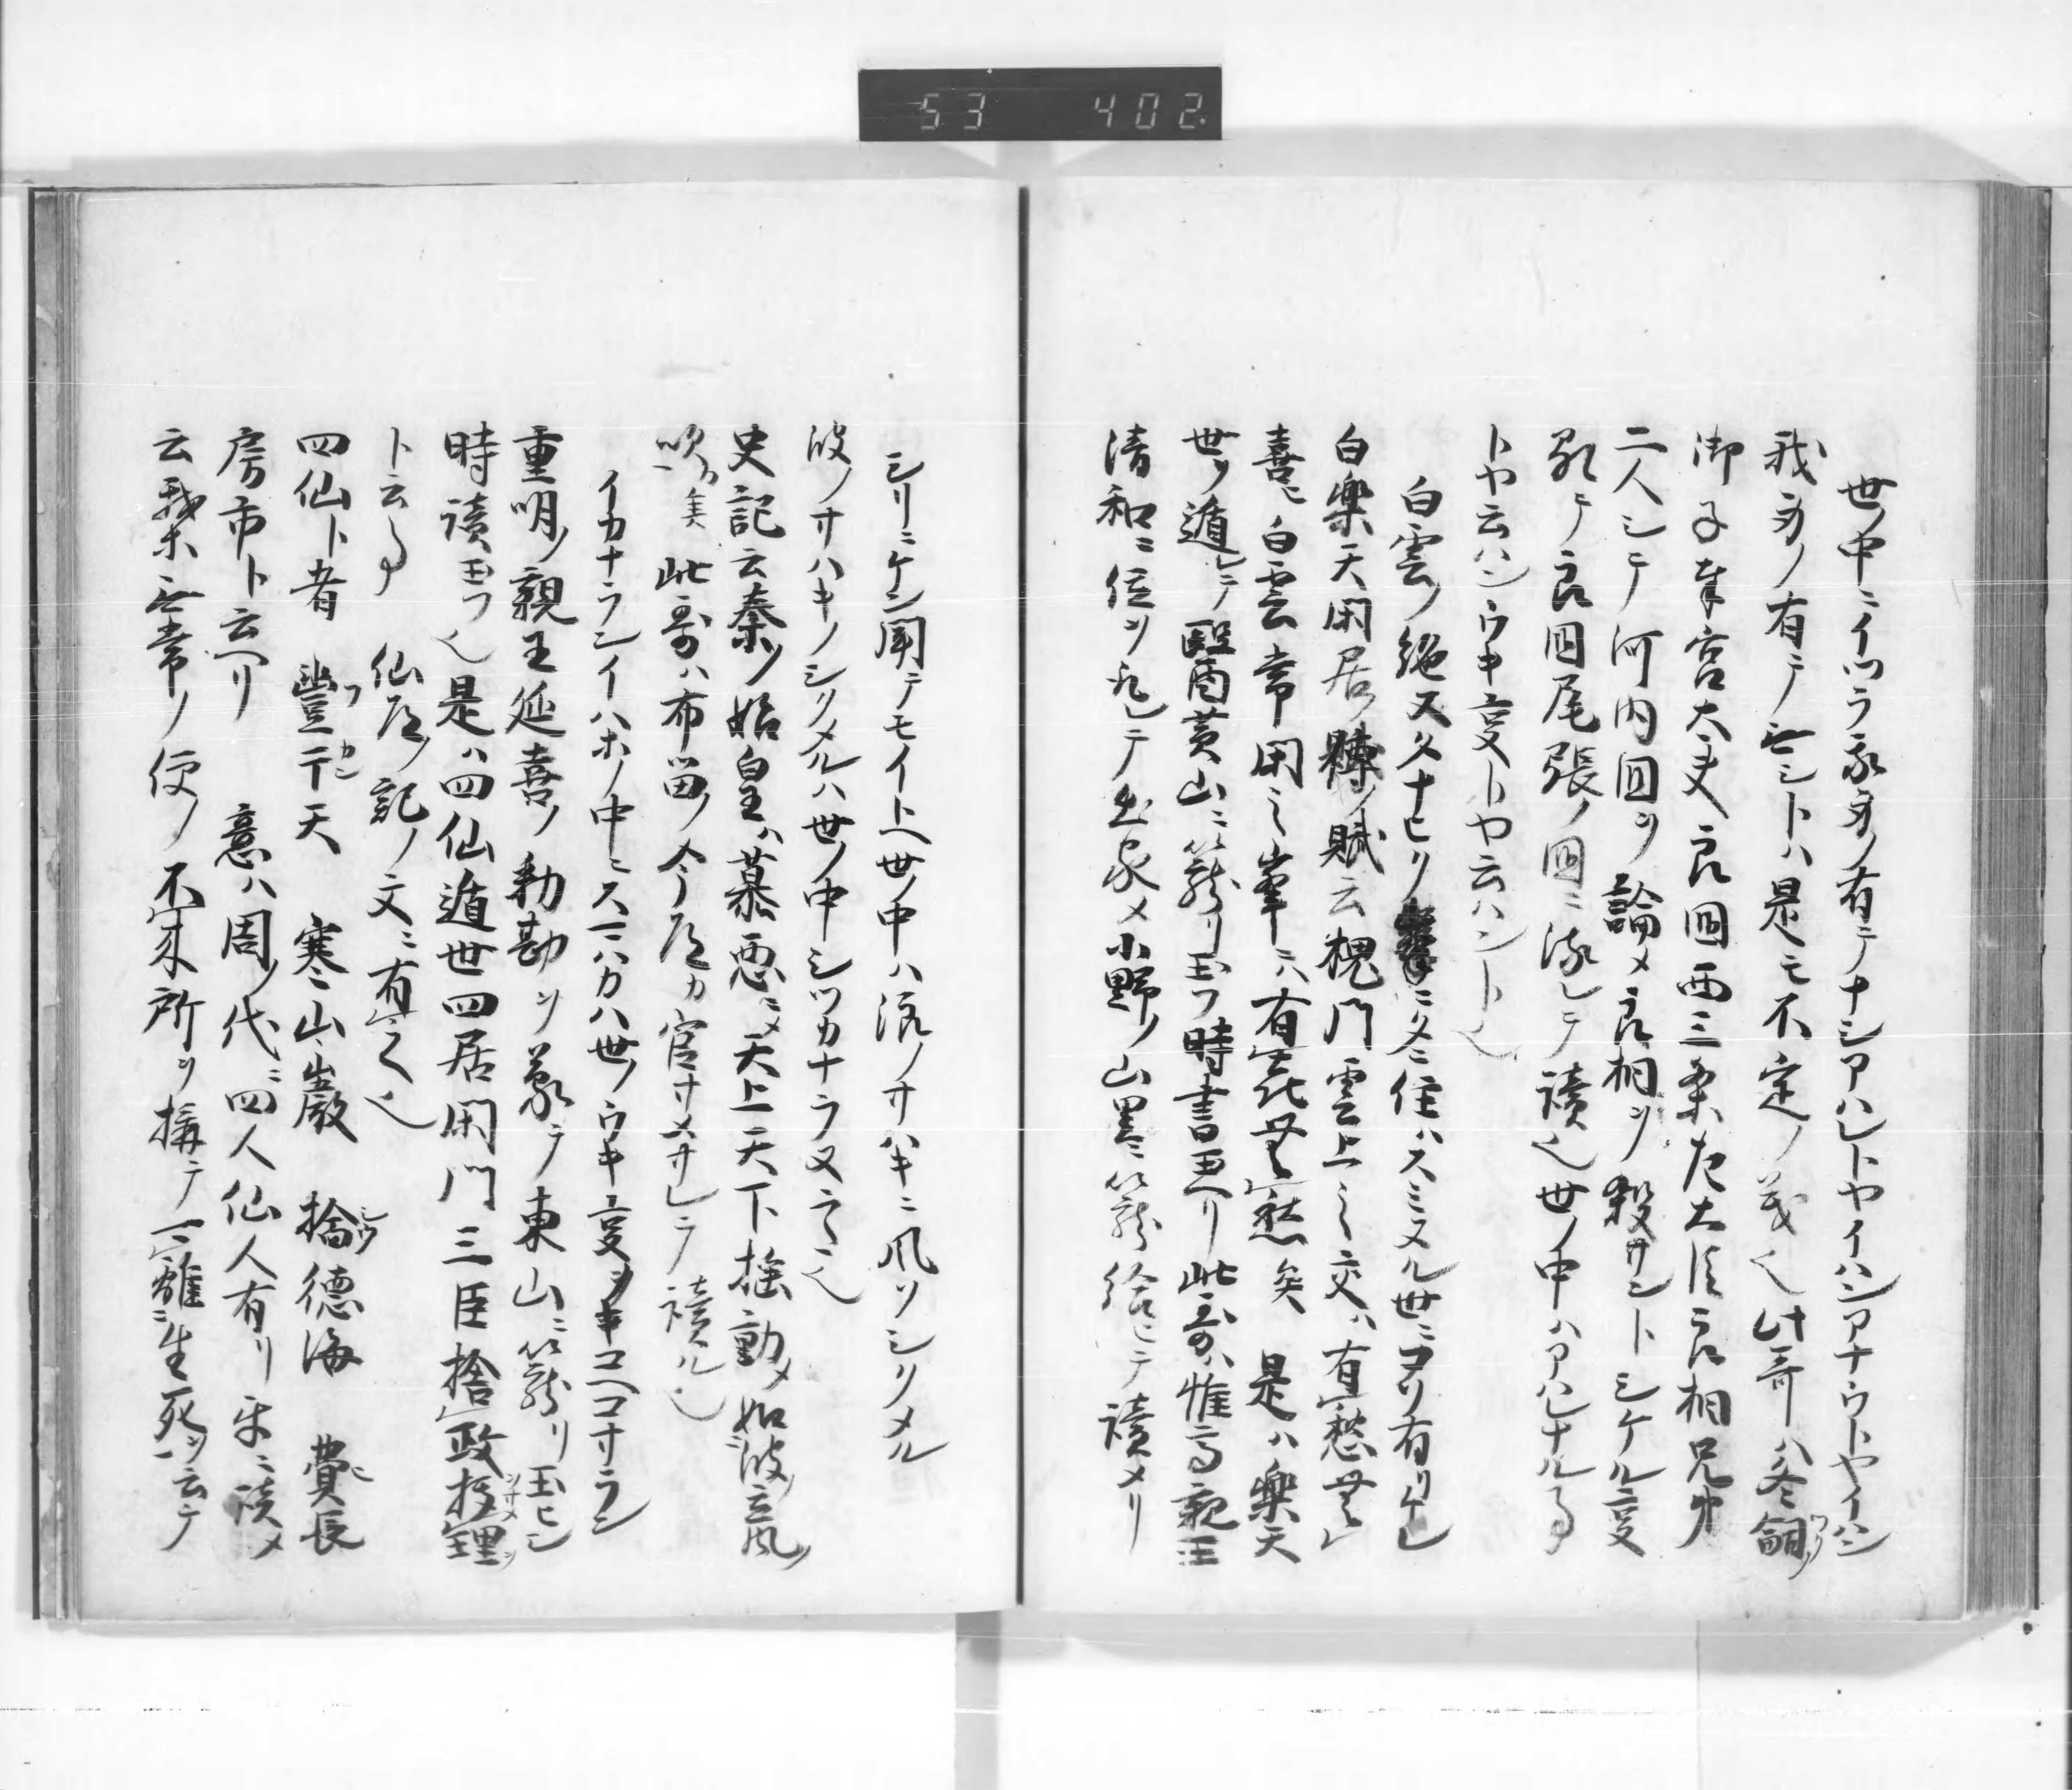 53 402
世ノ中ニイツラ我身ノ有テナシアハレトヤイハンアナウトヤイハン
我身ノ有テ无シトハ是モ不定ノ義也此哥ハ冬嗣
御子東宮大夫良国西三条左大臣良相兄弟
二人シテ河内国ヲ論メ良相ヲ殺サントシケル変
顕テ良国尾張ノ国ニ流レテ読也世ノ中ハアハレナル事
トヤ云ハンウキ変トヤ云ハント也
白雲ノ絶スタナヒク峯ニタニ住ハスミヌル世ニコソ有リケレ
白楽天閑居ノ賦云槐門雲上之交ハ有愁無
喜白雲常閑之峯ニハ有花無愁矣 是ハ楽天
世ヲ遁レテ
黄山ニ籠リ玉フ時書玉ヘリ此哥ハ惟高親王
清和ニ位ヲ
テ出家メ小野ノ山里ニ籠給ヒテ読メリ
シリニケン聞テモイトヘ世ノ中ハ浪ノサハキニ風ソシクメル
波ノサハキノシクメルハ世ノ中シツカナラヌ也
史記云秦ノ始皇ハ慕悪ニメ天上天下揺動メ如波立風ノ
吹カ矣 此哥ハ布留ノ今道カ官サメサレテ読ル也
イカナラン イハホノ中ニスマハカハ世ノウキ変ノキコヘコサラン
重明ノ親王延喜ノ勅勘ヲ蒙テ東山ニ籠リ玉ヒシ
時読玉フ也是ハ四仙遁世四居閑門三臣捨政抂理
ト云事 仙道ノ記ノ文ニ有之也
四仙ト者 豊干天 寒山巌 捨徳海 費長
房市ト云ヘリ 意ハ周ノ代ニ四人仙人有リ
云我ホ无常ノ使ノ不来所ヲ構テ離生死ヲ云テ